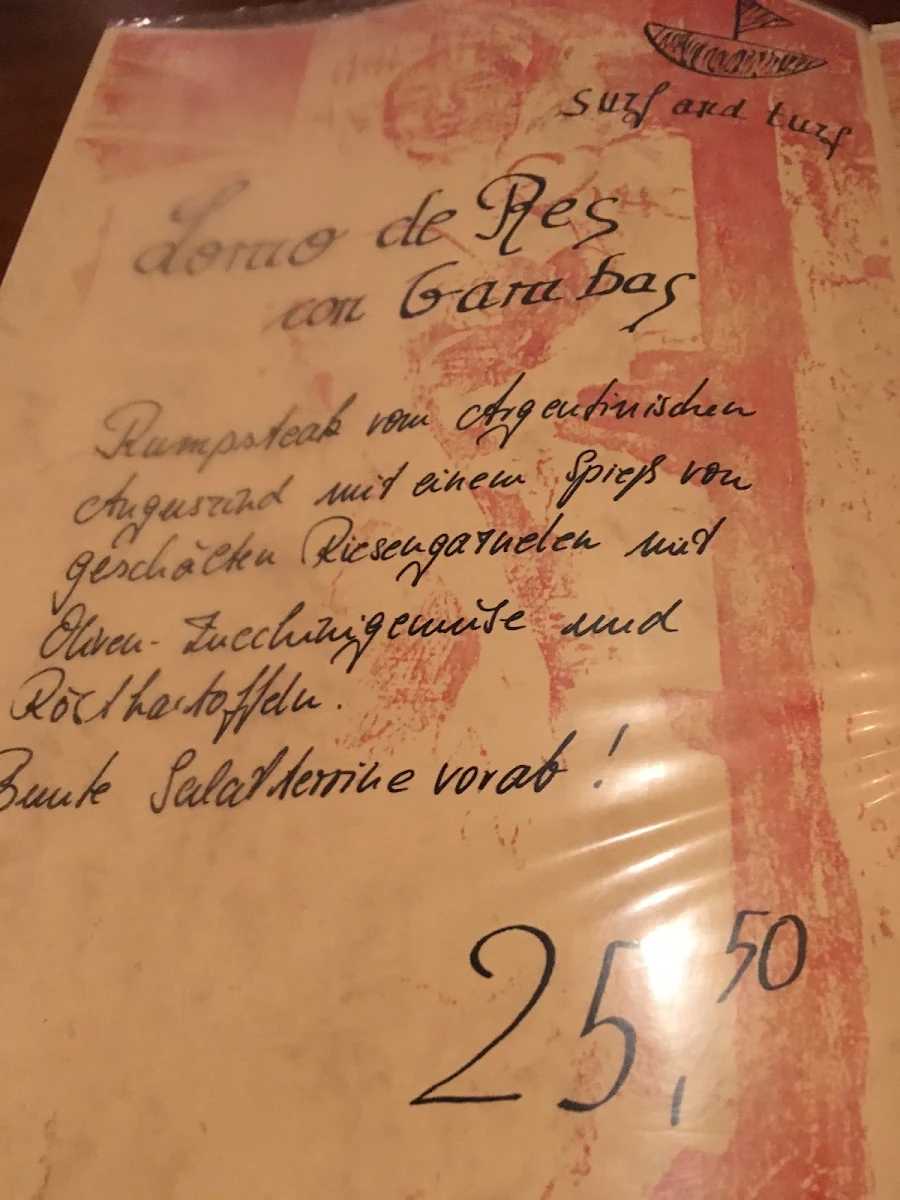 surf and turf
Lomo de Res
con Gambas
Rumpsteak vom Argentinischen
Angusrind mit einem Spieß von
geschälten Riesengarnelen mit
Oliven-Zucchinigemüse und
Röstkartoffeln.
Bunte Salatterrine vorab!
25,50